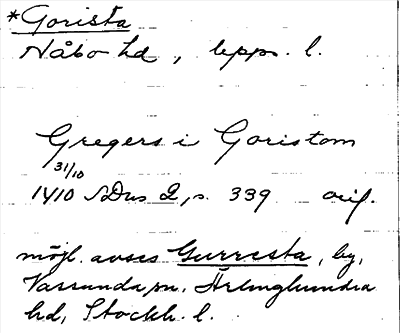 *Gorista
Håbo hd, Upps. l.
Gregers i Goristom
31/10
1410 SDns 2, s. 339 orig.
möjl. avses Gurresta, by,
Vassunda sn, Ärlinghundra
hd, Stockh. l.